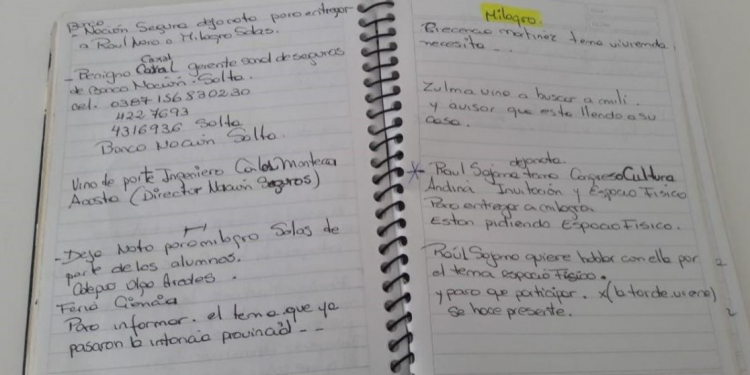 Banco
- Nación Seguro dejo nota para entregar
a Raul Noro o Milagro Salas.
- Benigno Casal gerente zonal de seguros
de Banco Nación - Salta.
cel. 0387 156830230
4227693
4316936 Salta
Banco Nación Salta
Vino de parte Ingeniero Carlos
Acosta (Director Nación Seguros)
- Dejo Nota para milagro Salas de
parte de los alumnos.
Colegio Olga Arados.
Feria Ciencia
Para informar. el tema que ya
pasaron la intancia provincial --
Milagro.
martinez tema vivienda
necesita...
Zulma vino a buscar a mili.
y avisar que esta llendo a su
casa.
dejo nota.
* Raul Sajama tema Congreso Cultura
Andina Invitación y Espacio Fisico
Para entregar a milagro.
Estan pidiendo Espacio Fisico.
Raúl Sajama quiere hablar con ella por
el tema espacio Fisico.
y para que participar. x (la tarde viene)
se hace presente.